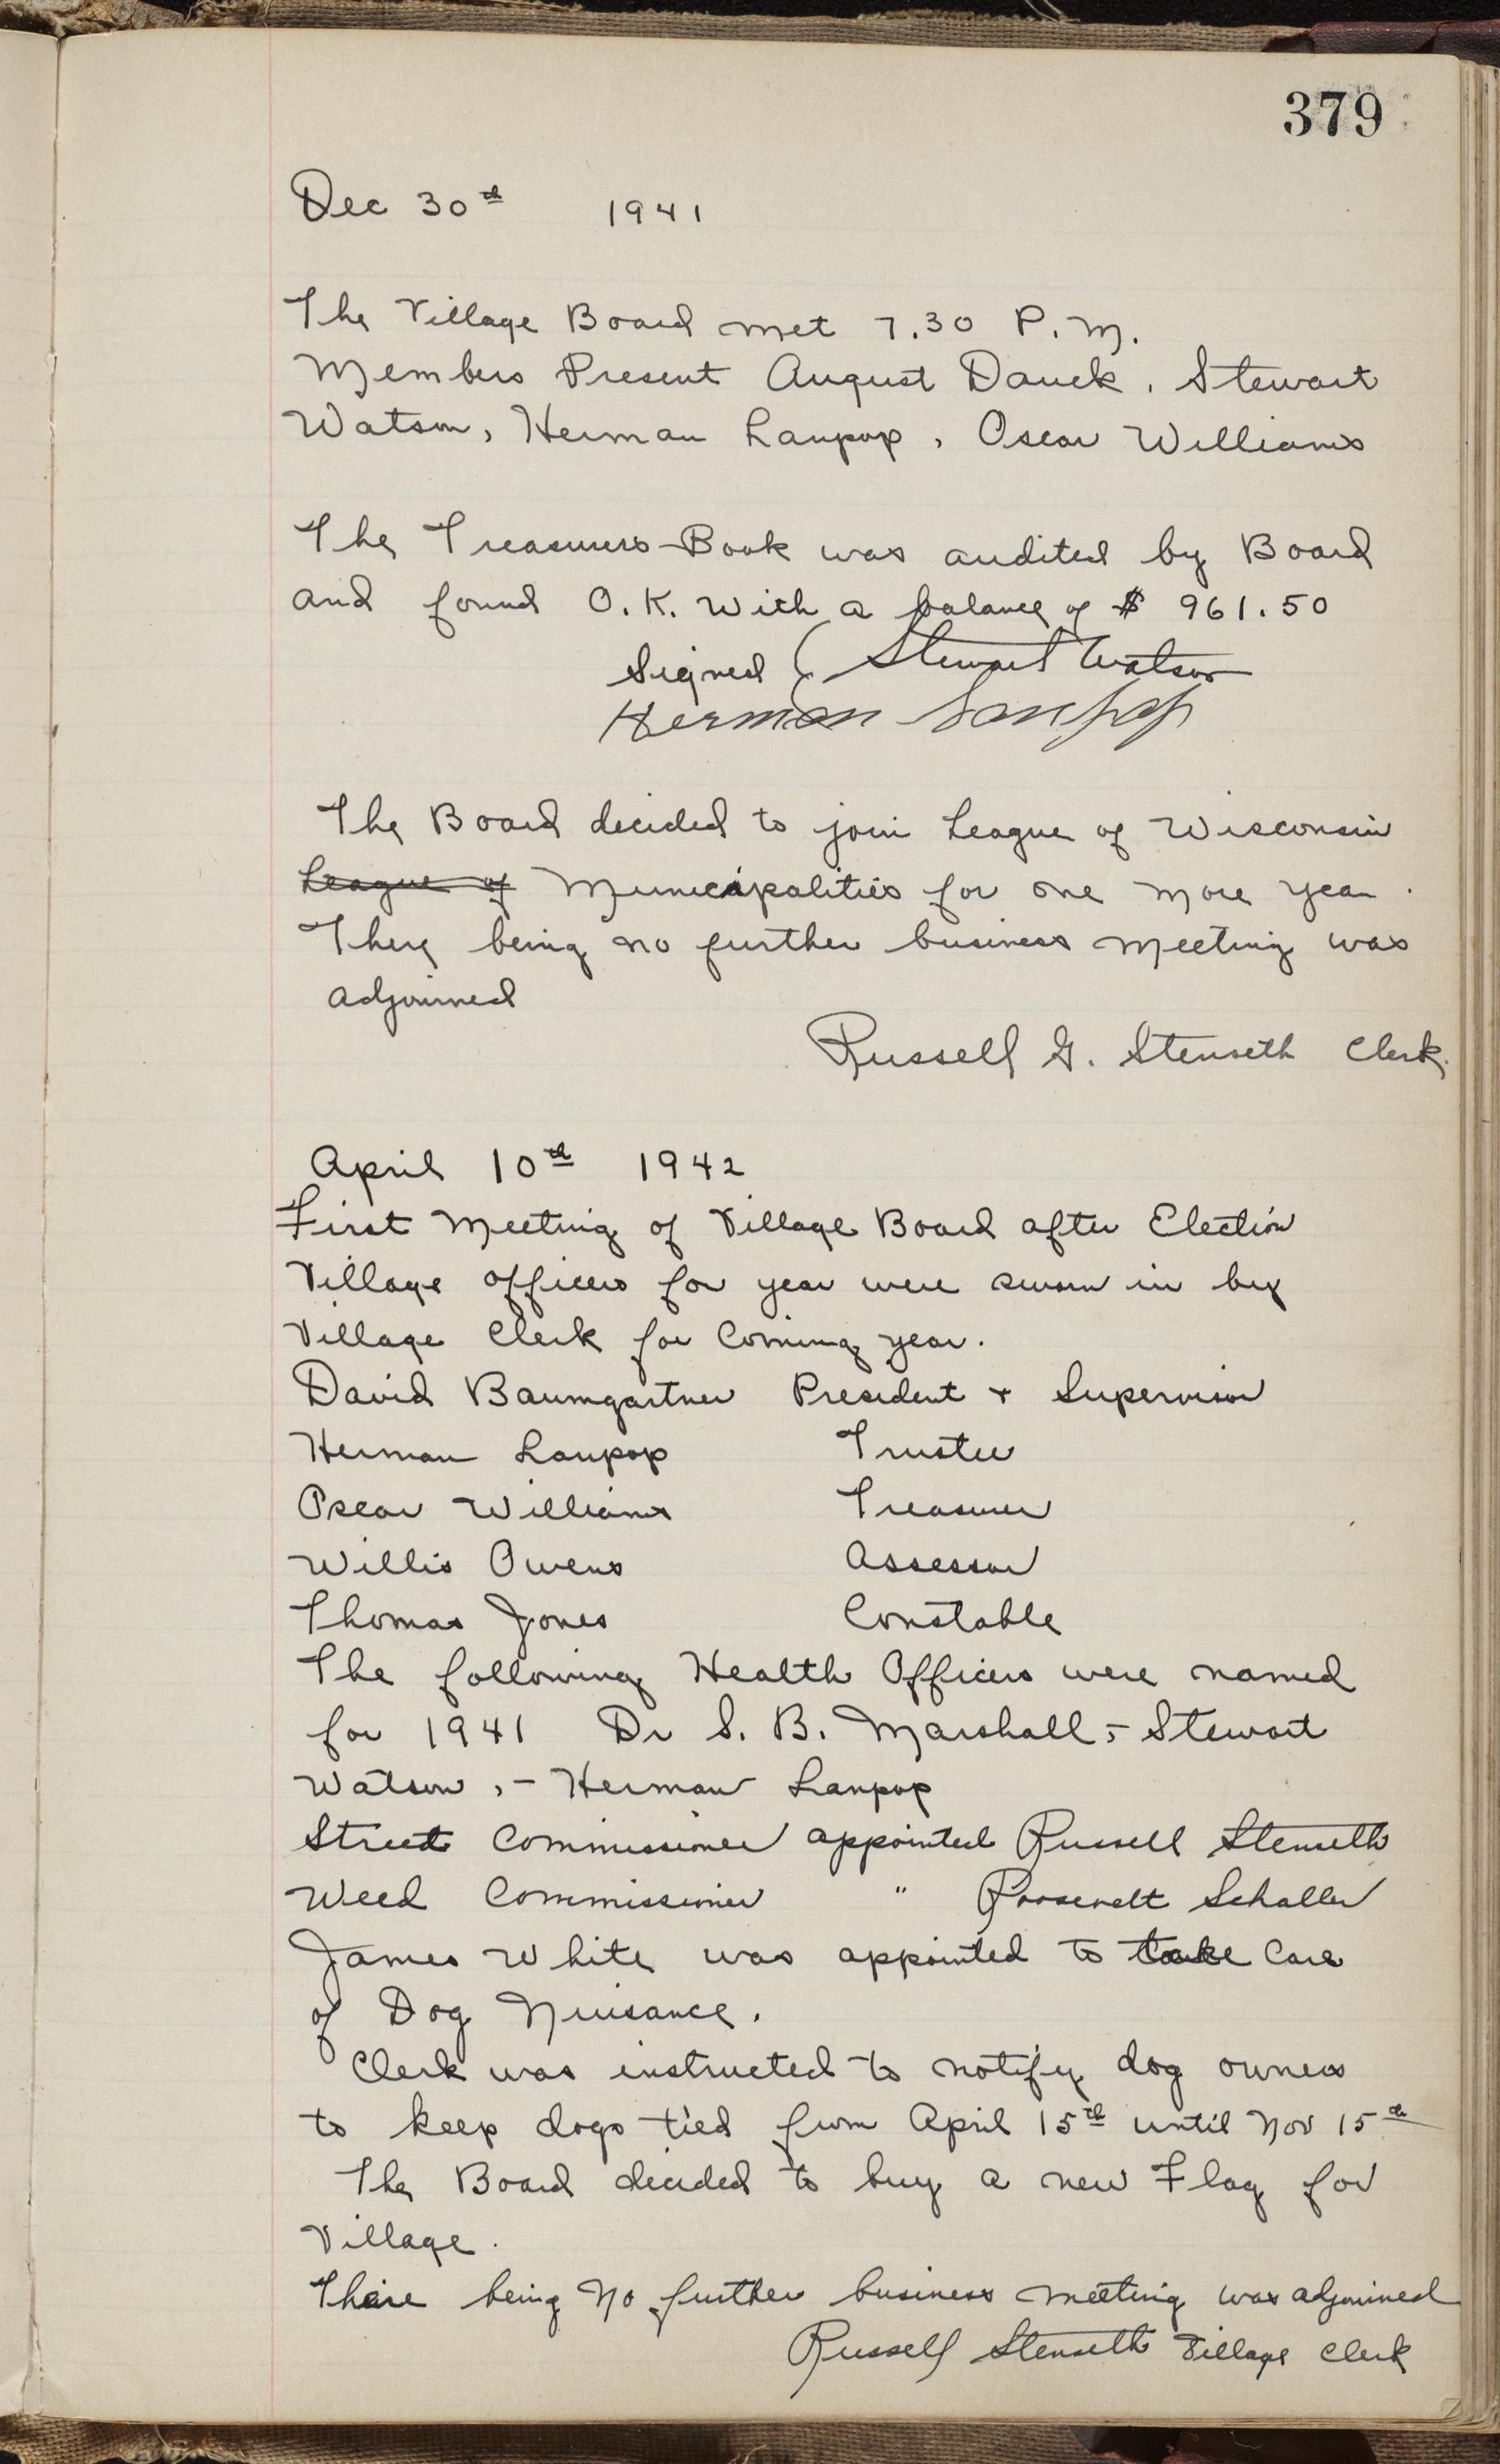 379
Dec 30th 1941
The Village Board met 7.30 P.M.
Members Present August Dauck, Stewart
Watson, Herman Laupop, Oscar Williams
The Treasurers Book was audited by Board
and found O.K. With a balance of $ 961.50
Signed ( Stewart Watson
Herman Laupop
The Board decided to join League of Wisconsin
League of Municipalities for one more year.
There being no further business meeting was
adjourned
Russell G. Stenseth Clerk.
April 10th 1942
First Meeting of Village Board after Election
Village officers for year were sworn in by
Village Clerk for Coming year.
David Baumgartner President + Supervisor
Herman Laupop Trustee
Oscar Williams Treasurer
Willis Owens Assessor
Thomas Jones Constable
The following Health Officers were named
for 1941 Dr S. B. Marshall, - Stewart
Watson, - Herman Laupop
Street Commissioner appointed Russell Stenseth
Weed Commissioner " Roosevelt Schaller
James White was appointed to take Care
of Dog Nuisance.
Clerk was instructed to notify dog owners
to keep dogs tied from April 15th until Nov 15th
The Board decided to buy a new Flag for
Village.
There being no further business meeting was adjourned
Russell Stenseth Village Clerk